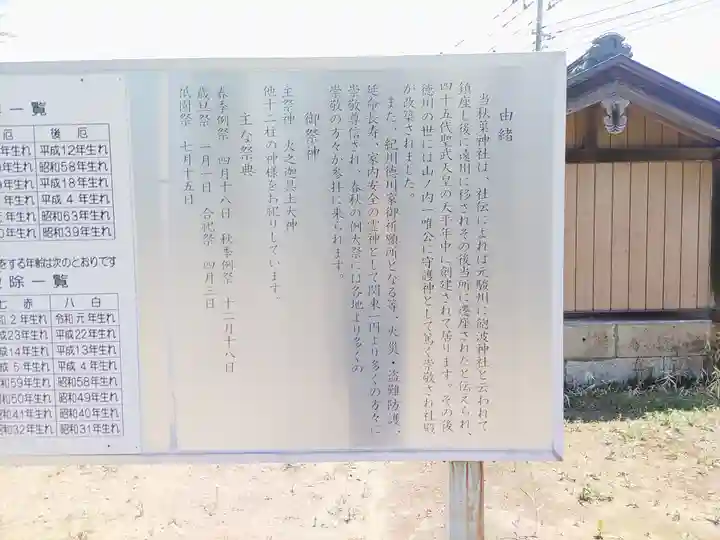 由緒
当秋葉神社は、社伝によれば元駿州に飽波神社と云われて
鎮座し後に遠州に移されその後当所に遷座されたと伝えられ、
四十五代聖武天皇の天平年中に創建されて居ります。その後
徳川の世には山ノ内一唯公に守護神として篤く崇敬され社殿
が改築されました。
また、紀州徳川家御祈願所となる等、火災・盗難防護、
延命長寿、家内安全の霊神として関東一円より多くの方々に
崇敬尊信され、春秋の例大祭には各地より多くの
崇敬の方々が参拝に来られます。
御祭神
主祭神 火之迦具土大神
他十二柱の神様をお祀りしています。
主な祭典
春季例祭 四月十八日 秋季例祭 十二月十八日
歳旦祭 一月一日 合祀祭 四月三日
祇園祭 七月十五日
一覧
厄 後厄
年生れ 平成12年生れ
年生れ 昭和58年生れ
年生れ 平成18年生れ
年生れ 平成4年生れ
年生れ 昭和63年生れ
年生れ 昭和39年生れ
をする年齢は次のとおりです
除一覧
七赤 八白
2年生れ 令和元年生れ
23年生れ 平成22年生れ
14年生れ 平成13年生れ
5年生れ 平成4年生れ
59年生れ 昭和58年生れ
50年生れ 昭和49年生れ
41年生れ 昭和40年生れ
32年生れ 昭和31年生れ